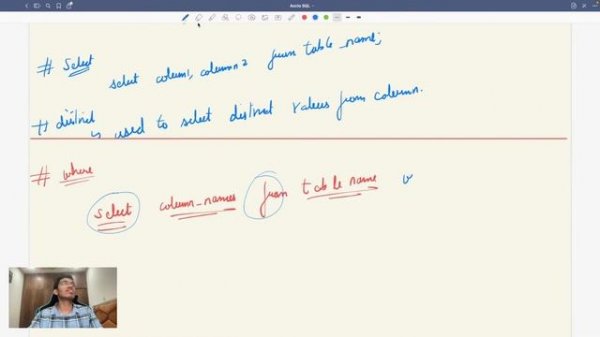 Apple SQL
# Select
select column1, column2 from table_name;
# distinct
is used to select distinct values from column.
# where
select column_names from table name